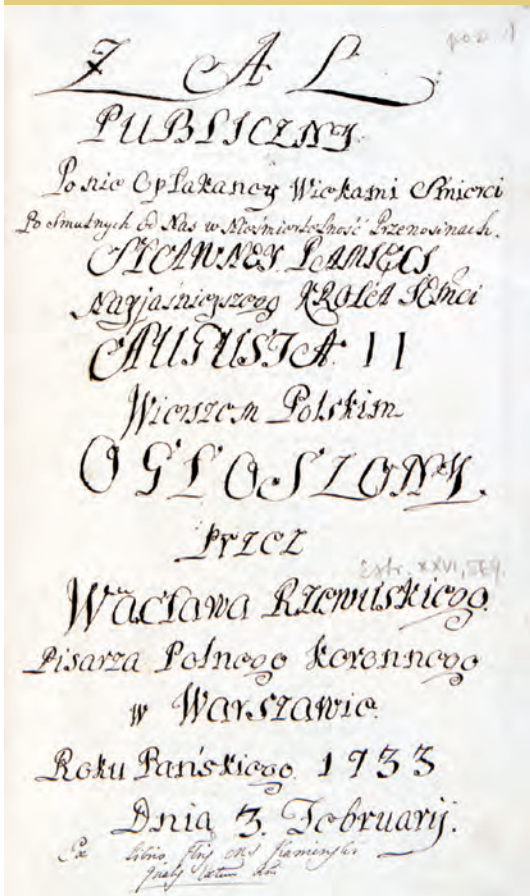 poz. 1
ŻAL
PUBLICZNY.
Po nie Opłakaney Wiekami Śmierci
Po Smutnych od Nas w Nieśmiertelność Przenosinach.
SŁAWNEY PAMIĘCI
Nayjaśnieyszego KROLA JEMci
AUGUSTA II
Wierszem Polskim
OGŁOSZONY.
Przez
Estr. XXVI, 569.
Wacława Rzewuskiego.
Pisarza Polnego Koronnego
w Warszawie.
Roku Pańskiego. 1733
Dnia 3. February.
Ex Libris